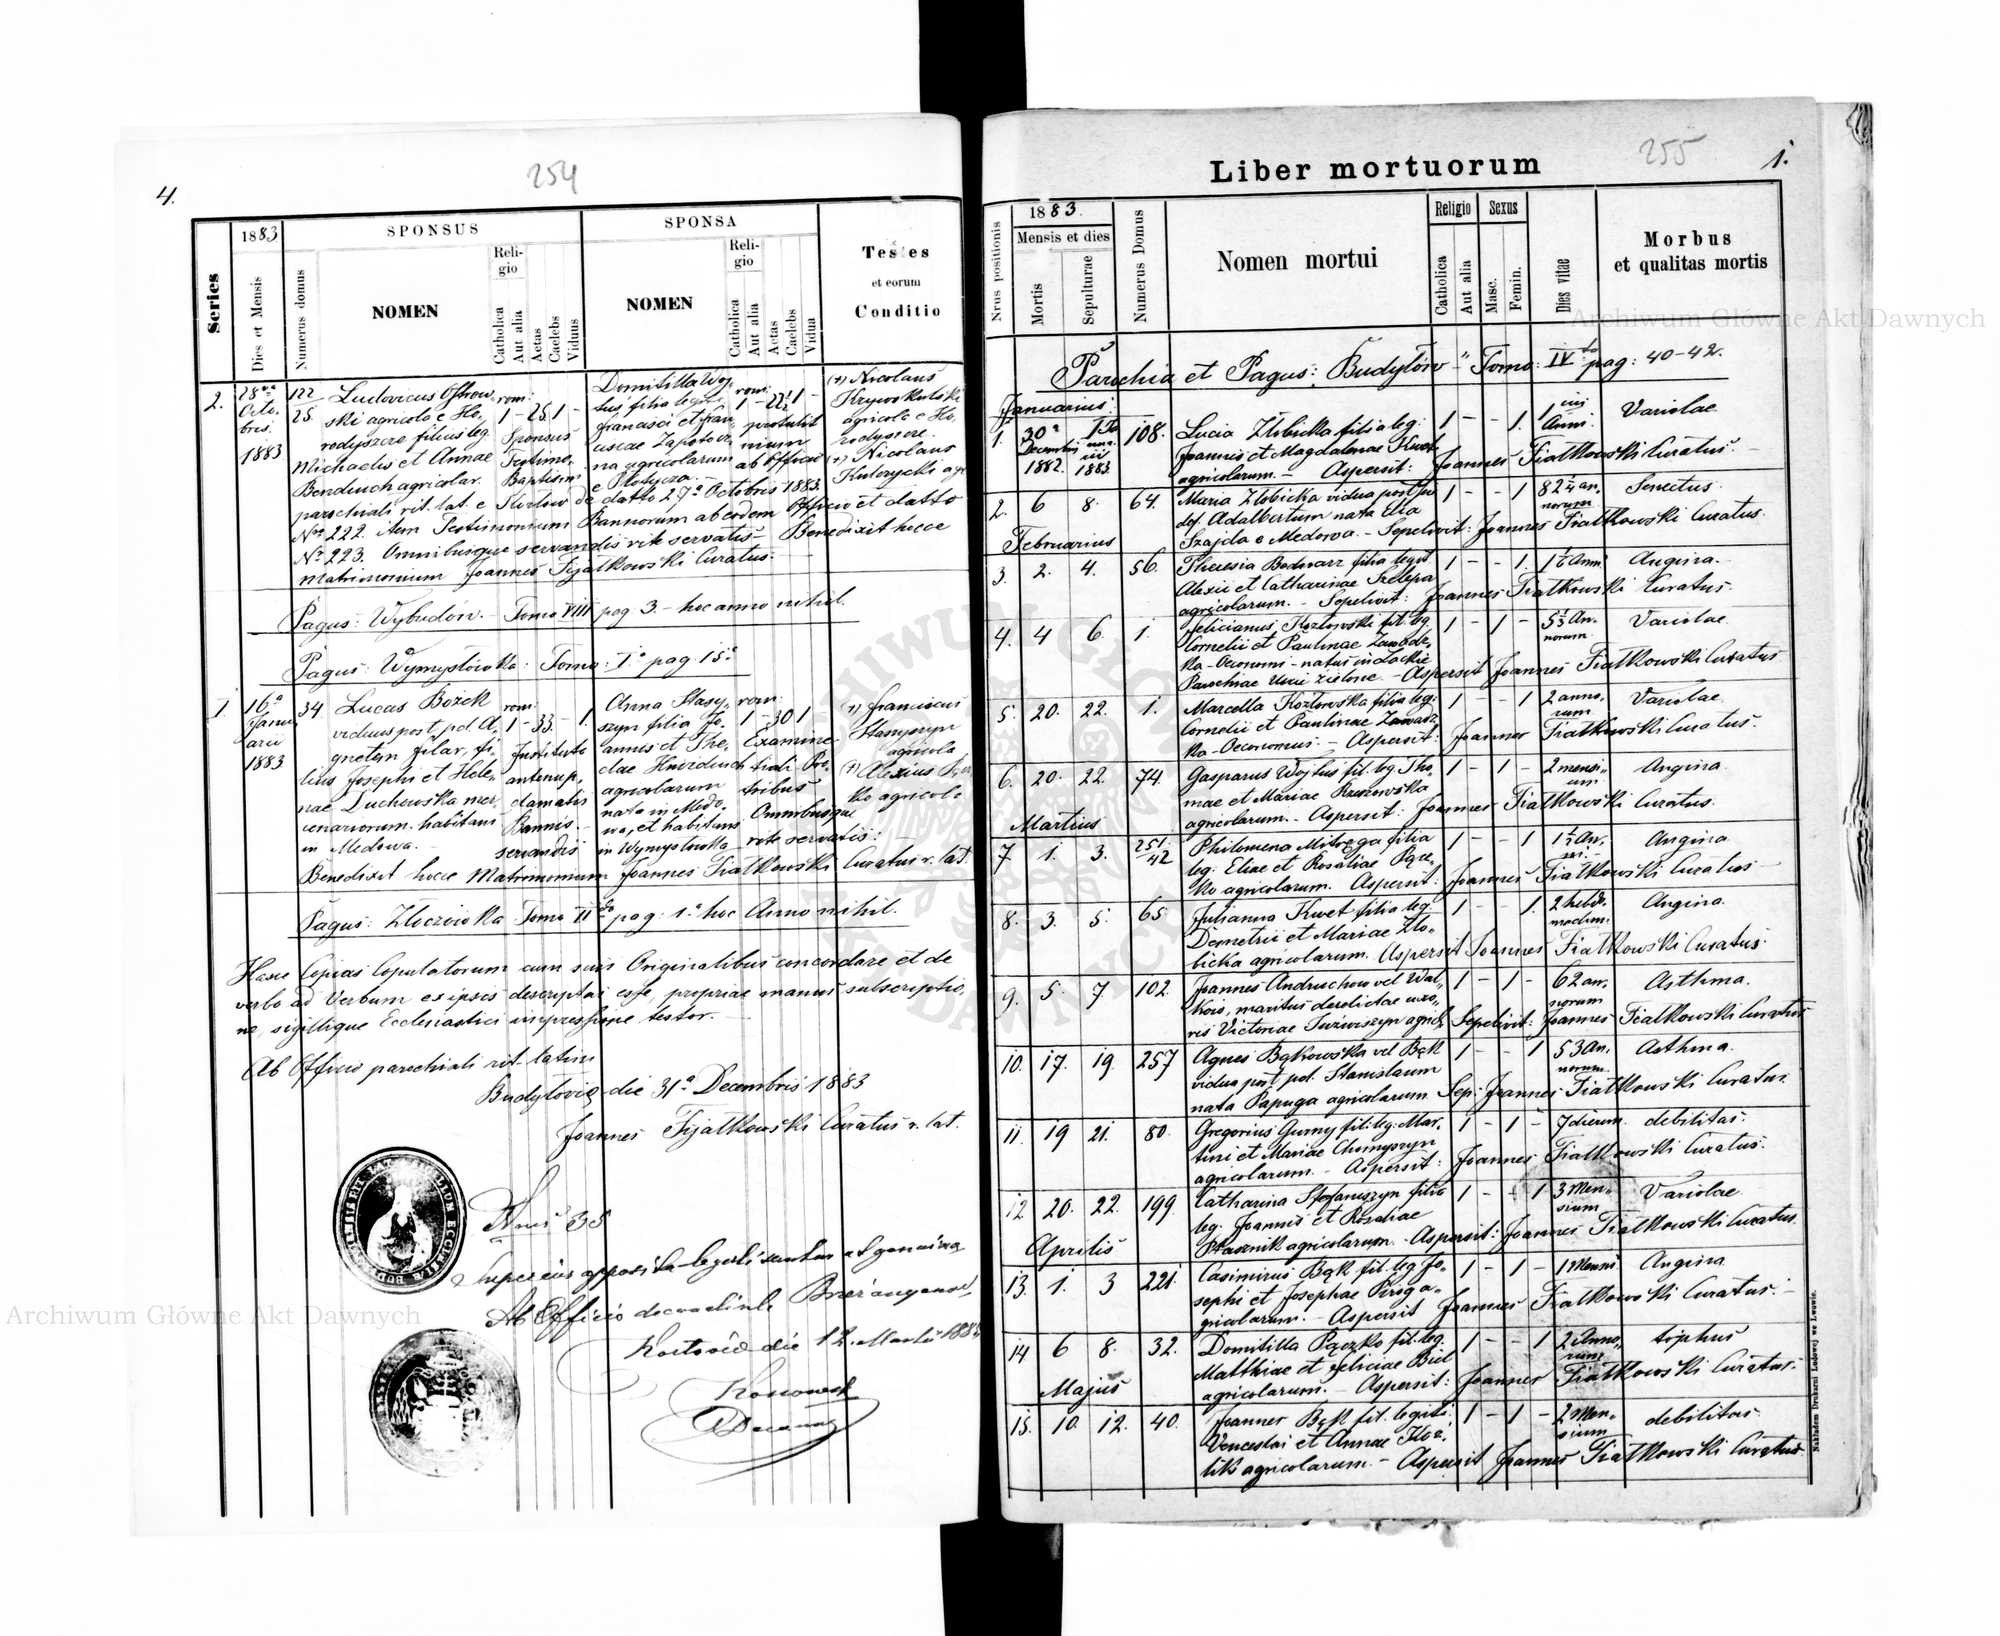 4.
254
Series
1883
Dies et Mensis
SPONSUS
Numerus domus
NOMEN
Reli-
gio
Catholica
Aut alia
Aetas
Caelebs
Viduus
SPONSA
NOMEN
Reli-
gio
Catholica
Aut alia
Aetas
Caelebs
Vidua
Testes
et eorum
Conditio
2.
28
Octo-
bris
1883
122
25.
Ludovicus Ostrow-
ski agricola e Ho-
rodyszcze filius leg.
Michaelis et Annae
Benduch agricolar.
rom:
1 - 25 1 -
Sponsus
Testimo-
Baptismi
Domitilla Woj-
tus filia legit.
Francisci et Fran-
ciscae Zapotocz-
na agricolarum
e Plotycza.
rom:
1 - 22 1 -
protulit
nium
ab Officio
(+) Nicolaus
Krywokulski
agricola e Ho-
rodyszcze.
(+) Nicolaus
Kulorycki agr
parochiali rit. lat. e Kozlow de datto 27a Octobris 1883.
No 222. item Testimonium Bannorum ab eodem Officio et datto
No 223. Omnibusque servandis rite servatis - Benedixit hocce
matrimonium Joannes Fijałkowski Curatus.
Pagus: Wybudów. - Tomo VIII pag 3. - hoc anno nihil.
Pagus: Wymysłówka: Tomo: Io pag. 15.
1.
16a
Janu-
arii
1883
34.
Lucas Bożek
viduus post p.d. A-
gnetem Filar, fi-
lius Josephi et Hele-
nae Duchowska mer-
cenariorum, habitans
in Medowa. -
rom:
1 - 33 - 1.
Instituto
antenup.
clamatis
Bannis. -
servandis
Anna Stasy-
szyn filia Jo-
annis et The-
clae Hnidiuch
agricolarum
nata in Medo-
wa, et habitans
in Wymysłówka
rom:
1 - 30 1
Examine
tiali Pro-
tribus
Omnibusque
rite servatis: -
(+) Franciscus
Stasyszyn
agricola
(+) Alexius
ko agricola
Benedixit hocce Matrimonium Joannes Fiałkowski Curatus r. lat.
Pagus: Złoczówka Tomo II do pag: 1a hoc Anno nihil.
Hasce Copias Copulatorum cum suis Originalibus concordare et de
verbo ad Verbum ex ipsis descriptas esse, propriae manus subscriptio-
ne, sigillique Ecclesiastici impressione testor. -
Ab Officio parochiali rit. latini
Budyloviae die 31a Decembris 1883
Joannes Fijałkowski Curatus r. lat.
Nrus 35
Superius apposita legalisantur ut genuina
Ab Officio decanali Brzezanensi,
die 12. Martii 188
Decanus
Liber mortuorum
255
1.
Nrus positionis
1883.
Mensis et dies
Mortis
Sepulturae
Numerus Domus
Nomen mortui
Religio
Catholica
Aut alia
Sexus
Masc.
Femin.
Dies vitae
Morbus
et qualitas mortis
Parochia et Pagus: Budyłów - Tomo: IV to pag: 40-42.
Januarius:
1.
30a
Decembris
1882.
1a
1883
108.
Lucia Złobicka filia leg:
Joannis et Magdalenae Kwet
agricolarum. - Aspersit: Joannes Fiałkowski Curatus. -
1 - - 1.
1
Anni
Variolae
2.
6
8.
64.
Maria Złobicka vidua post p.
def. Adalbertum nata Elia
Szajda e Medowa. - Sepelivit: Joannes Fiałkowski Curatus.
1 - - 1
82 1/4 an-
norum
Senectus.
Februarius
3.
2.
4.
56.
Theresia Bednarz filia legit.
Alexii et Catharinae Szelepa
agricolarum. - Sepelivit: Joannes Fiałkowski Curatus.
1 - - 1.
1 1/2 Anni.
Angina. -
4.
4
6.
1.
Felicianus Kozłowski fil. leg.
Cornelii et Paulinae Zawadz-
ka - Oeconomi - natus in Łackie
Parochiae Uście zielone. - Aspersit Joannes Fiałkowski Curatus.
1 - 1 -
5 1/2 An-
norum
Variolae.
5.
20.
22.
1.
Marcella Kozłowska filia leg:
Cornelii et Paulinae Zawadz-
ka - Oeconomus. - Aspersit: Joannes Fiałkowski Curatus.
1 - - 1
2 anno-
rum
Variolae.
6.
20.
22.
74.
Gasparus Wojtus fil. leg. Tho-
mae et Mariae Rzeszowska
agricolarum. - Aspersit: Joannes Fiałkowski Curatus.
1 - 1 -
2 mensi-
um
Angina
Martius
7
1.
3.
251
42
Philomena Mitręga filia
leg: Eliae et Rosaliae Pącz-
ko agricolarum. Aspersit: Joannes Fiałkowski Curatus -
1 - - 1
1 1/2 An-
ni.
Angina.
8.
3.
5.
65.
Julianna Kwet filia leg.
Demetrii et Mariae Zło-
bicka agricolarum. Aspersit Joannes Fiałkowski Curatus.
1 - - 1.
2 hebdo-
madum.
Angina.
9.
5.
7
102.
Joannes Andruchow vel Wal-
kow, maritus derelictae uxo-
ris Victoriae Juzwiszyn agric. Sepelivit: Joannes Fiałkowski Curatus
1 - 1 -
62 an-
norum
Asthma.
10.
17.
19.
257
Agnes Bąkowska vel Bąk
vidua post p.d. Stanislaum
nata Papuga agricolarum Sep: Joannes Fiałkowski Curatus.
1 - - 1
53 An-
norum.
Asthma.
11.
19
21.
80.
Gregorius Gurny fil. leg. Mar-
tini et Mariae Chomyszyn
agricolarum. - Aspersit: Joannes Fiałkowski Curatus.
1 - 1 -
7 dierum.
debilitas.
12.
20.
22.
199.
Catharina Stefaniszyn filia
leg. Joannis et Rosaliae
Ptasznik agricolarum. - Aspersit: Joannes Fiałkowski Curatus.
1 - - 1
3 Men-
sium
Variolae.
Aprilis
13.
1.
3
221.
Casimirus Bąk fil. leg Jo-
sephi et Josephae Piróg a-
gricolarum. - Aspersit Joannes Fiałkowski Curatus. -
1 - 1 -
1 Mensis
Angina.
14
6
8.
32.
Domitilla Pączko fil. leg.
Matthiae et Feliciae Biel
agricolarum. - Aspersit: Joannes Fiałkowski Curatus.
1 - - 1
2 Anno-
rum
tiphus
Majus
15.
10.
12.
40.
Joannes Bąk fil. legiti.
Venceslai et Annae
lik agricolarum. - Aspersit Joannes Fiałkowski Curatus
1 - 1 -
2 Men-
sium
debilitas.
Nakładem Drukarni Ludowej we Lwowie.
Archiwum Główne Akt Dawnych
Archiwum Główne Akt Dawnych
ARCHIWUM GŁÓWNE AKT DAWNYCH